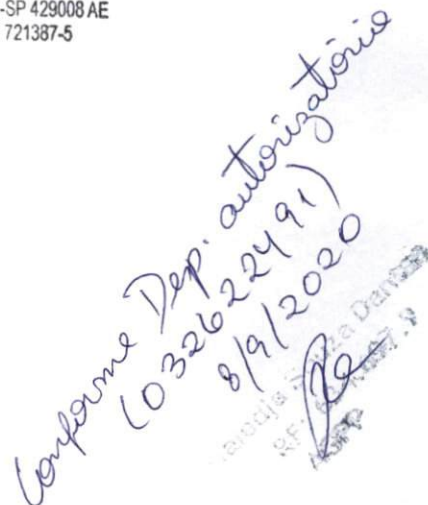 -SP 429008 AE
721387-5
Conforme Desp. autorizatório
(032622491)
8/9/2020
Souza Dantas
RF: